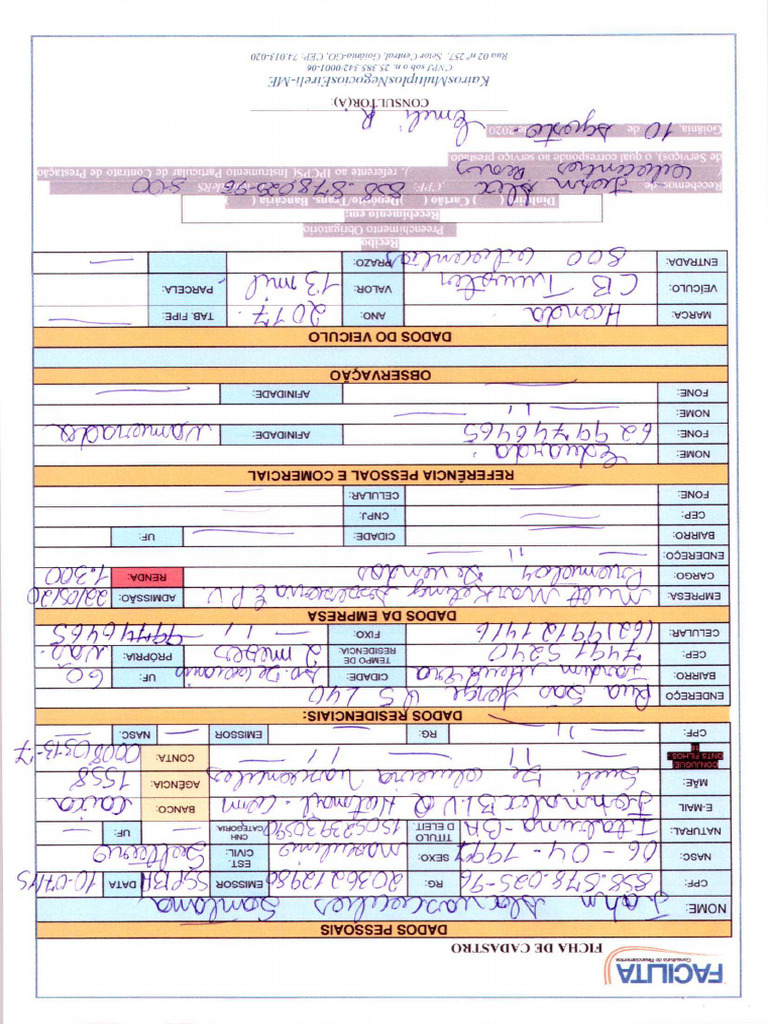 FACILITA
Consultoria de Financiamentos
FICHA DE CADASTRO
DADOS PESSOAIS
NOME: John Alex Vasconcelos Santana
CPF: 858.878.025-96 RG: 2036212980 EMISSOR SSP BA DATA 10-07/15
NASC: 06-04-1997 SEXO: masculino EST. CIVIL: Solteiro
NATURAL: Itabuna-BA TITULO D ELEIT 150623930590 CNH CATEGORIA — UF: —
E-MAIL BANCO: Caixa
MÃE: Sueli De oliveira Vasconcelos AGÊNCIA: 1558
CONJUGUE QNTS FILHOS: — 11 — 11 — CONTA: 00080313-7
CPF: — 11 — RG: — EMISSOR — NASC: —
DADOS RESIDENCIAIS:
ENDEREÇO Rua São Jorge
BAIRRO Jardim CIDADE: UF: GO
CEP: 74915240 TEMPO DE RESIDENCIA: 2 meses PRÓPRIA: Não
CELULAR: (62)991421416 FIXO: — 11 — 99746465
DADOS DA EMPRESA
EMPRESA: Mult Marketing ADMISSÃO: 22/05/20
CARGO: Promotor De vendas RENDA: 1.300
ENDEREÇO: — 11 —
BAIRRO: — CIDADE: — UF:
CEP: — CNPJ: —
FONE: — CELULAR: —
REFERÊNCIA PESSOAL E COMERCIAL
NOME: Eduarda
FONE: 62 99746465 AFINIDADE: Namorada
NOME: — 11 —
FONE: — AFINIDADE: —
OBSERVAÇÃO
DADOS DO VEICULO
MARCA: Honda ANO: 2017 TAB. FIPE: —
VEÍCULO: CB Twister VALOR: 13 mil PARCELA:
ENTRADA: 800 oitocentos PRAZO: —
Recibo
Preenchimento Obrigatório
Recebimento em:
Dinheiro ( ) Cartão ( ) Depósito/Trans. Bancária ( )
Recebemos de John Alex CPF: 858.878.025-96 800
oitocentos Reais ), referente ao IPCPS( Instrumento Particular de Contrato de Prestação
de Serviços), o qual corresponde ao serviço prestado
Goiânia, 10 de Agosto - 2020
Emeli R.
CONSULTOR(A)
KairosMultiplosNegociosEireli-ME
CNPJ sob o n. 25.385.342/0001-06
Rua 02 nº 257, Setor Central, Goiânia-GO, CEP: 74.013-020